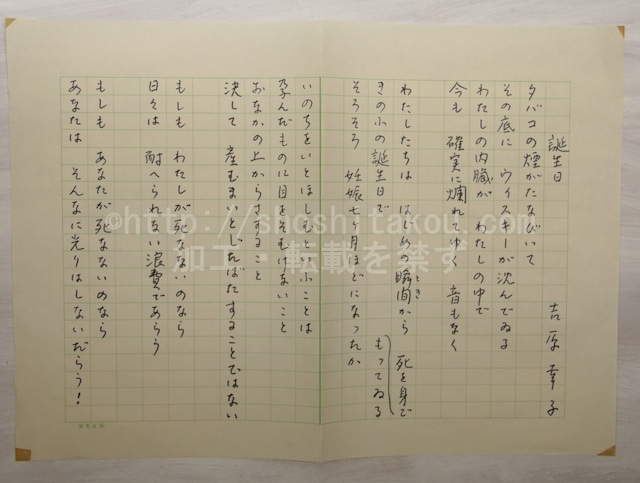 誕生日
吉原幸子
タバコの煙がたなびいて
その底に ウィスキーが沈んでゐる
わたしの内臓が わたしの中で
今も 確実に爛れてゆく 音もなく
わたしたちは はじめの瞬間から 死を身ご
とき
もってゐる
きのふの誕生日で
そろそろ 妊娠七ヶ月ほどになったか
いのちをいとほしむといふことは
孕んだものに目をそむけないこと
おなかの上からさすること
決して 産むまいとじたばたすることではない
もしも わたしが死なないのなら
日々は 耐へられない浪費であらう
もしも あなたが死なないのなら
あなたは そんなに光りはしないだらう!
©http://shoshi-takou.com
加工、転載を禁ず